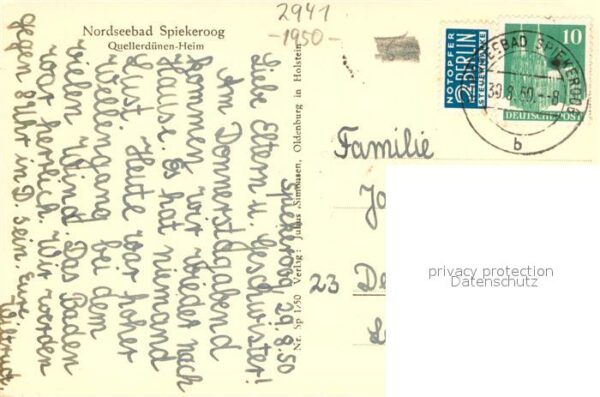 2941
-1950-
Nordseebad Spiekeroog
Quellerdünen-Heim
Spiekeroog, 29.8.50
Liebe Eltern u. Geschwister!
Am Donnerstagabend
kommen wir wieder nach
Hause. Es hat niemand
Lust. Heute war hoher
Wellengang bei dem
vielen Wind. Das Baden
war herrlich. Wir werden
gegen 8 Uhr in D. sein. Eure
Wiltrud.
Nr. Sp 1/50 Verlag: Julius Simonsen, Oldenburg in Holstein
NOTOPFER
2 BERLIN
STEUERMARKE
10
DEUTSCHE POST
NORDSEEBAD SPIEKEROOG
30.8.50.-8
b
Familie
Jo
23 De
privacy protection
Datenschutz